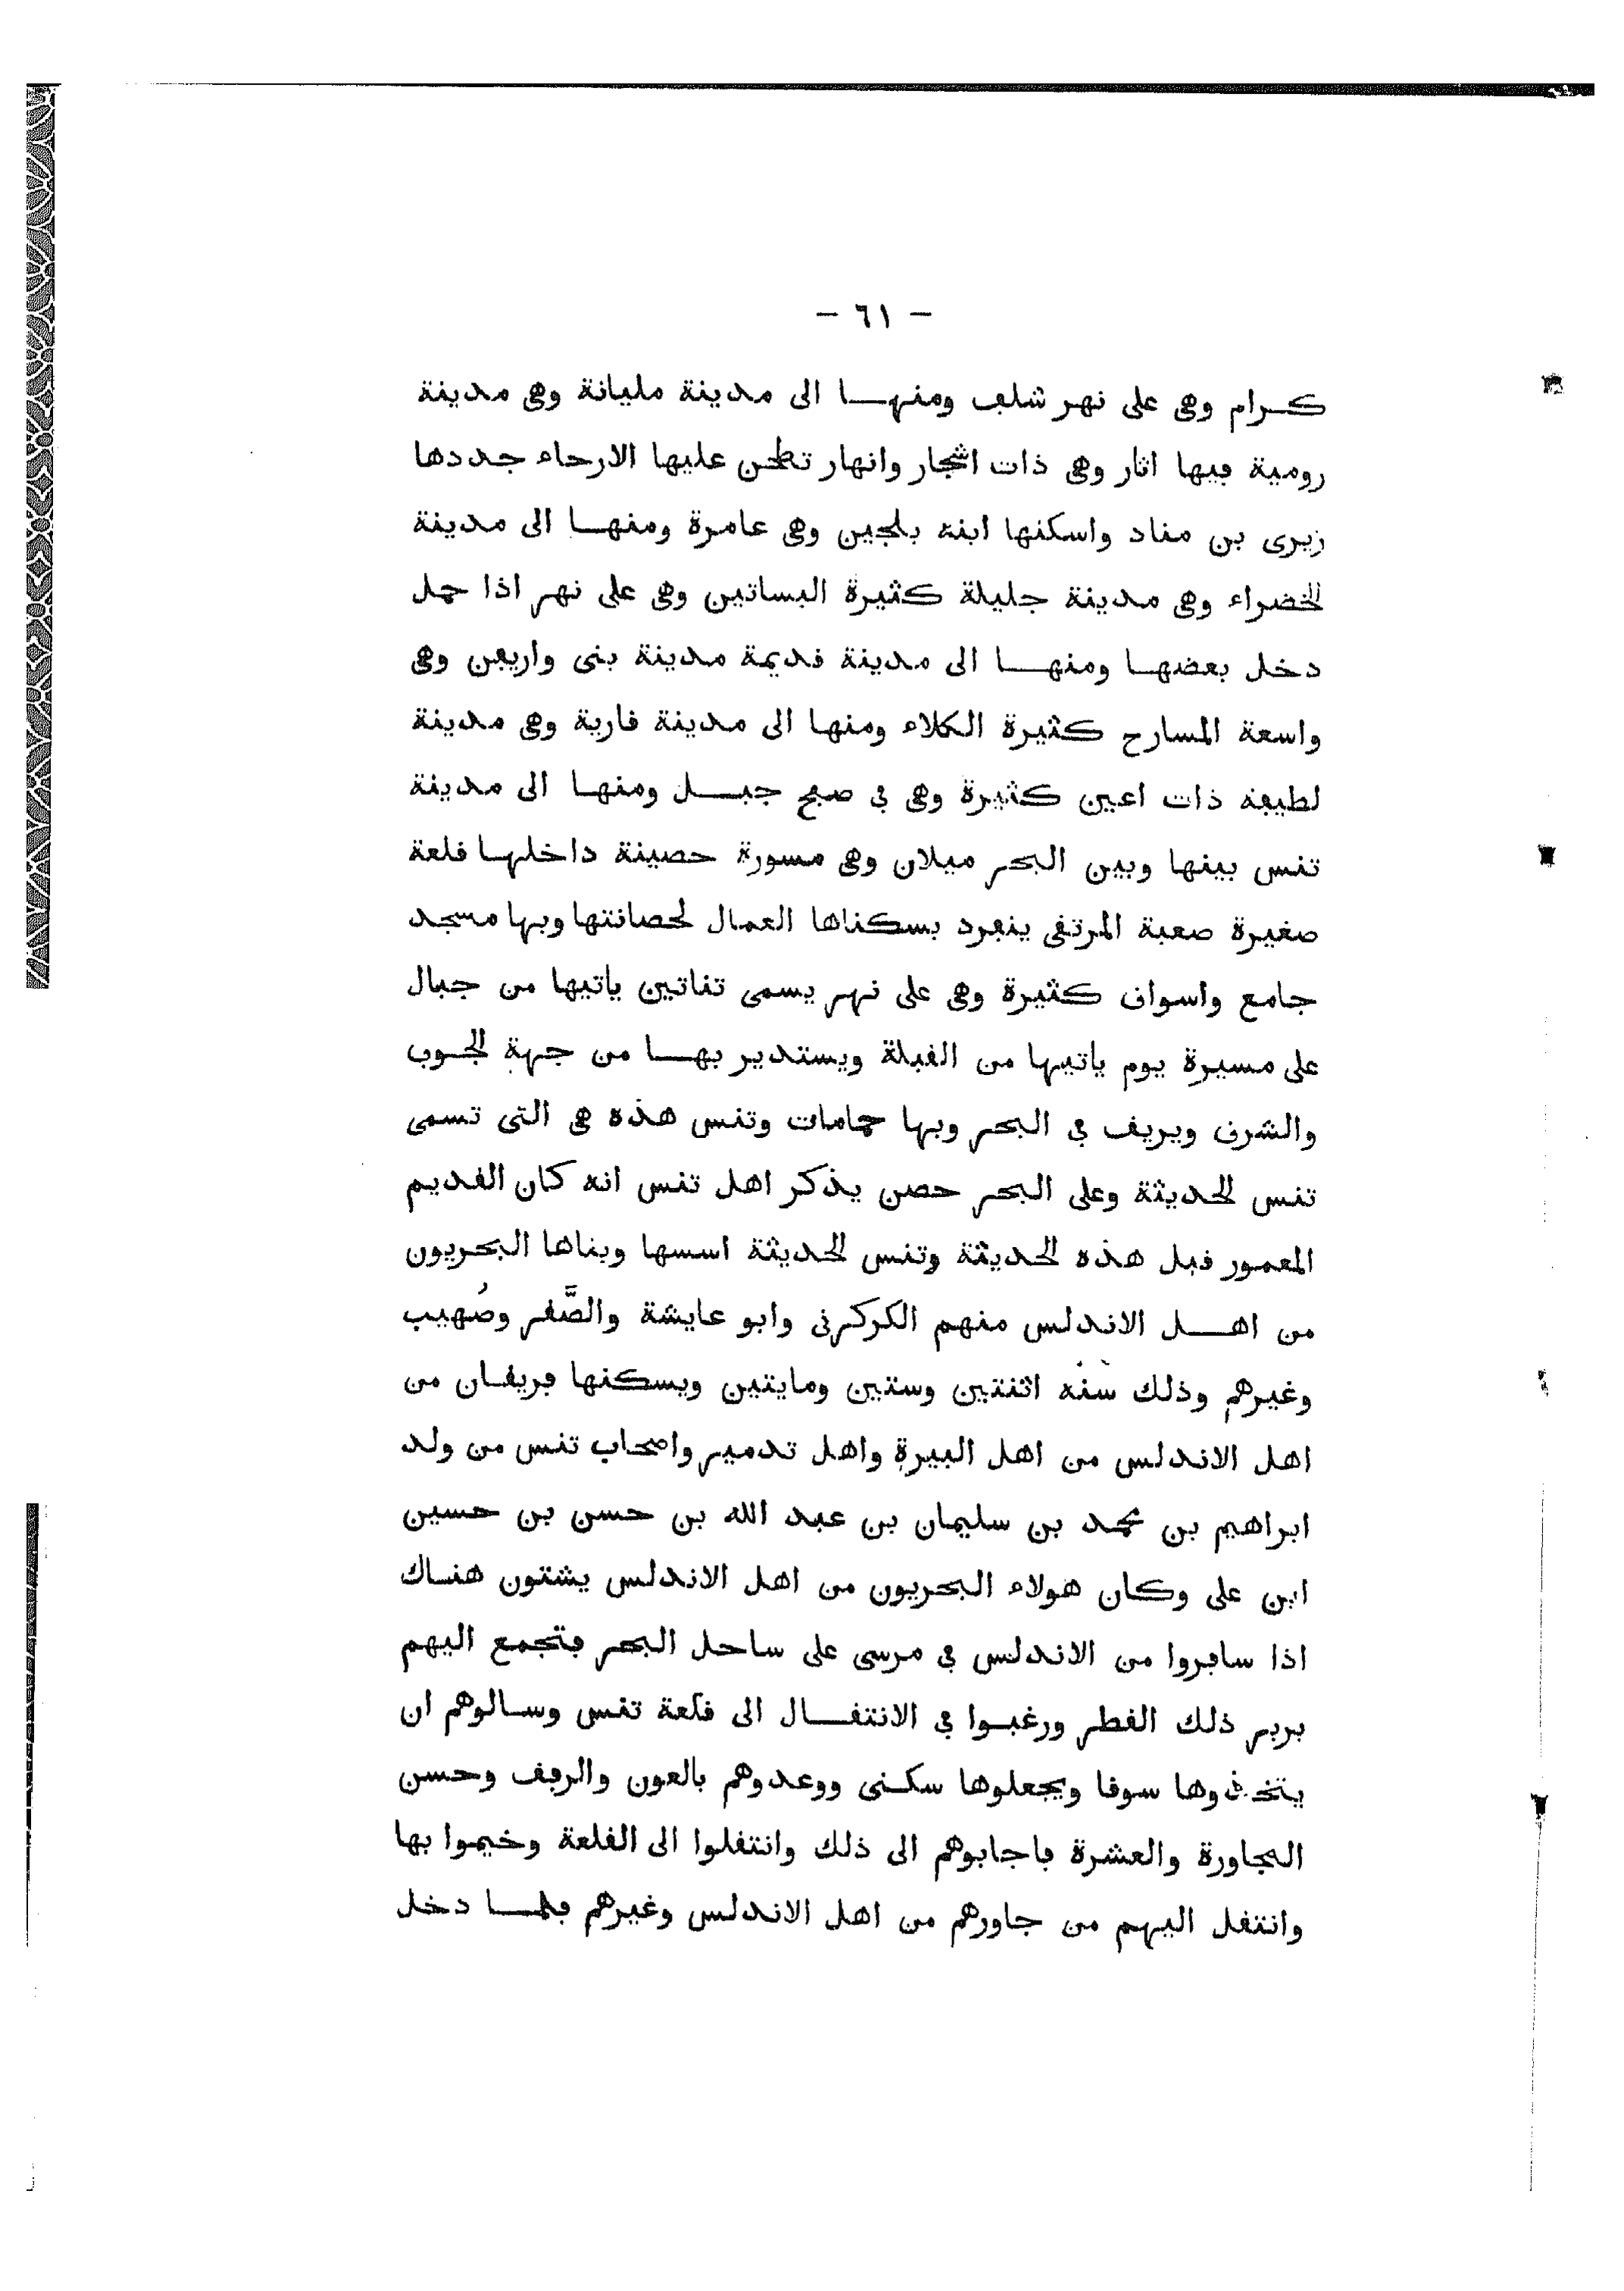 - ٦١ -
كرام وهى على نهر شلف ومنها الى مدينة مليانة وهى مدينة
رومية فيها اثار وهى ذات اشجار وانهار تطحن عليها الارحاء جددها
زيرى بن مناد واسكنها ابنه بلجين وهى عامرة ومنها الى مدينة
الخضراء وهى مدينة جليلة كثيرة البساتين وهى على نهر اذا حمل
دخل بعضها ومنها الى مدينة قديمة مدينة بنى واريفن وهى
واسعة المسارح كثيرة الكلاء ومنها الى مدينة قارية وهى مدينة
لطيفه ذات اعين كثيرة وهى فى صفح جبل ومنها الى مدينة
تنس بينها وبين البحر ميلان وهى مسورة حصينة داخلها قلعة
صغيرة صعبة المرتقى ينفرد بسكناها العمال لحصانتها وبها مسجد
جامع واسواق كثيرة وهى على نهر يسمى تناتين ياتيها من جبال
على مسيرة يوم ياتيها من القبلة ويستدير بها من جهة الجوب
والشرق ويريق فى البحر وبها حمامات وتنس هذه هى التى تسمى
تنس الحديثة وعلى البحر حصن يذكر اهل تنس انه كان القديم
المعمور قبل هذه الحديثة وتنس الحديثة اسسها وبناها البحريون
من اهل الاندلس منهم الكركرنى وابو عايشة والصَّقر وصُهيب
وغيرهم وذلك سنه اثنتين وستين ومايتين ويسكنها فريقان من
اهل الاندلس من اهل البيرة واهل تدمير واصحاب تنس من ولد
ابراهيم بن محمد بن سليمان بن عبد الله بن حسن بن حسين
ابن على وكان هولاء البحريون من اهل الاندلس يشتون هناك
اذا سافروا من الاندلس فى مرسى على ساحل البحر فتجمع اليهم
بربر ذلك القطر ورغبوا فى الانتقال الى قلعة تنس وسالوهم ان
يتخذوها سوقا ويجعلوها سكنى ووعدوهم بالعون والرفق وحسن
المجاورة والعشرة فاجابوهم الى ذلك وانتقلوا الى القلعة وخيموا بها
وانتقل اليهم من جاورهم من اهل الاندلس وغيرهم فلما دخل